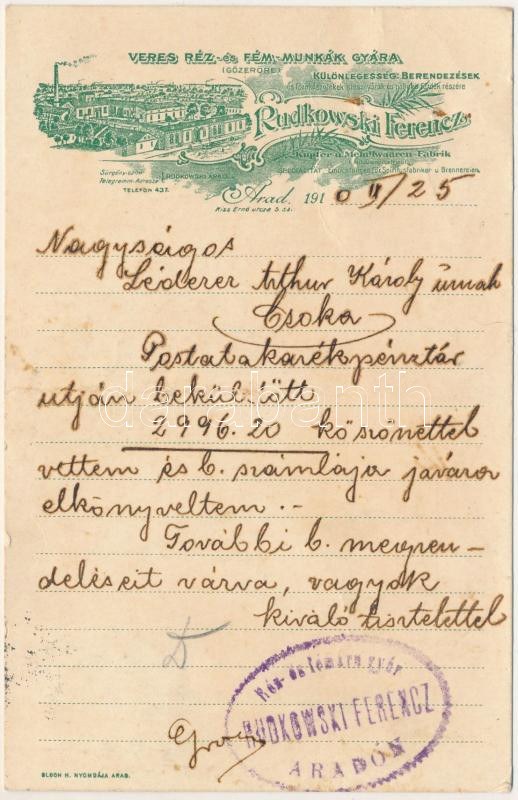 VERES RÉZ- és FÉM-MUNKÁK GYÁRA
(GŐZERŐRE)
KÜLÖNLEGESSÉG: BERENDEZÉSEK
Rudkowski Ferencz
Kupfer u. Metallwaaren-Fabrik
Sürgöny-czim
Telegramm-Adresse
RUDKOWSKI ARAD
TELEFON 437.
Arad, 1910 II/25
Kiss Ernő utcza 5 sz.
Nagyságos
Léderer Arthur Károly úrnak
Csoka
Postatakarékpénztár
utján beküldött
2996.20 köszönettel
vettem és b. számlája javára
elkönyveltem.-
További b. megren-
deléseit várva, vagyok
kiváló tisztelettel
Réz- és fémáru gyár
RUDKOWSKI FERENCZ
ARADON
BLOCH H. NYOMDÁJA ARAD.
darabanth